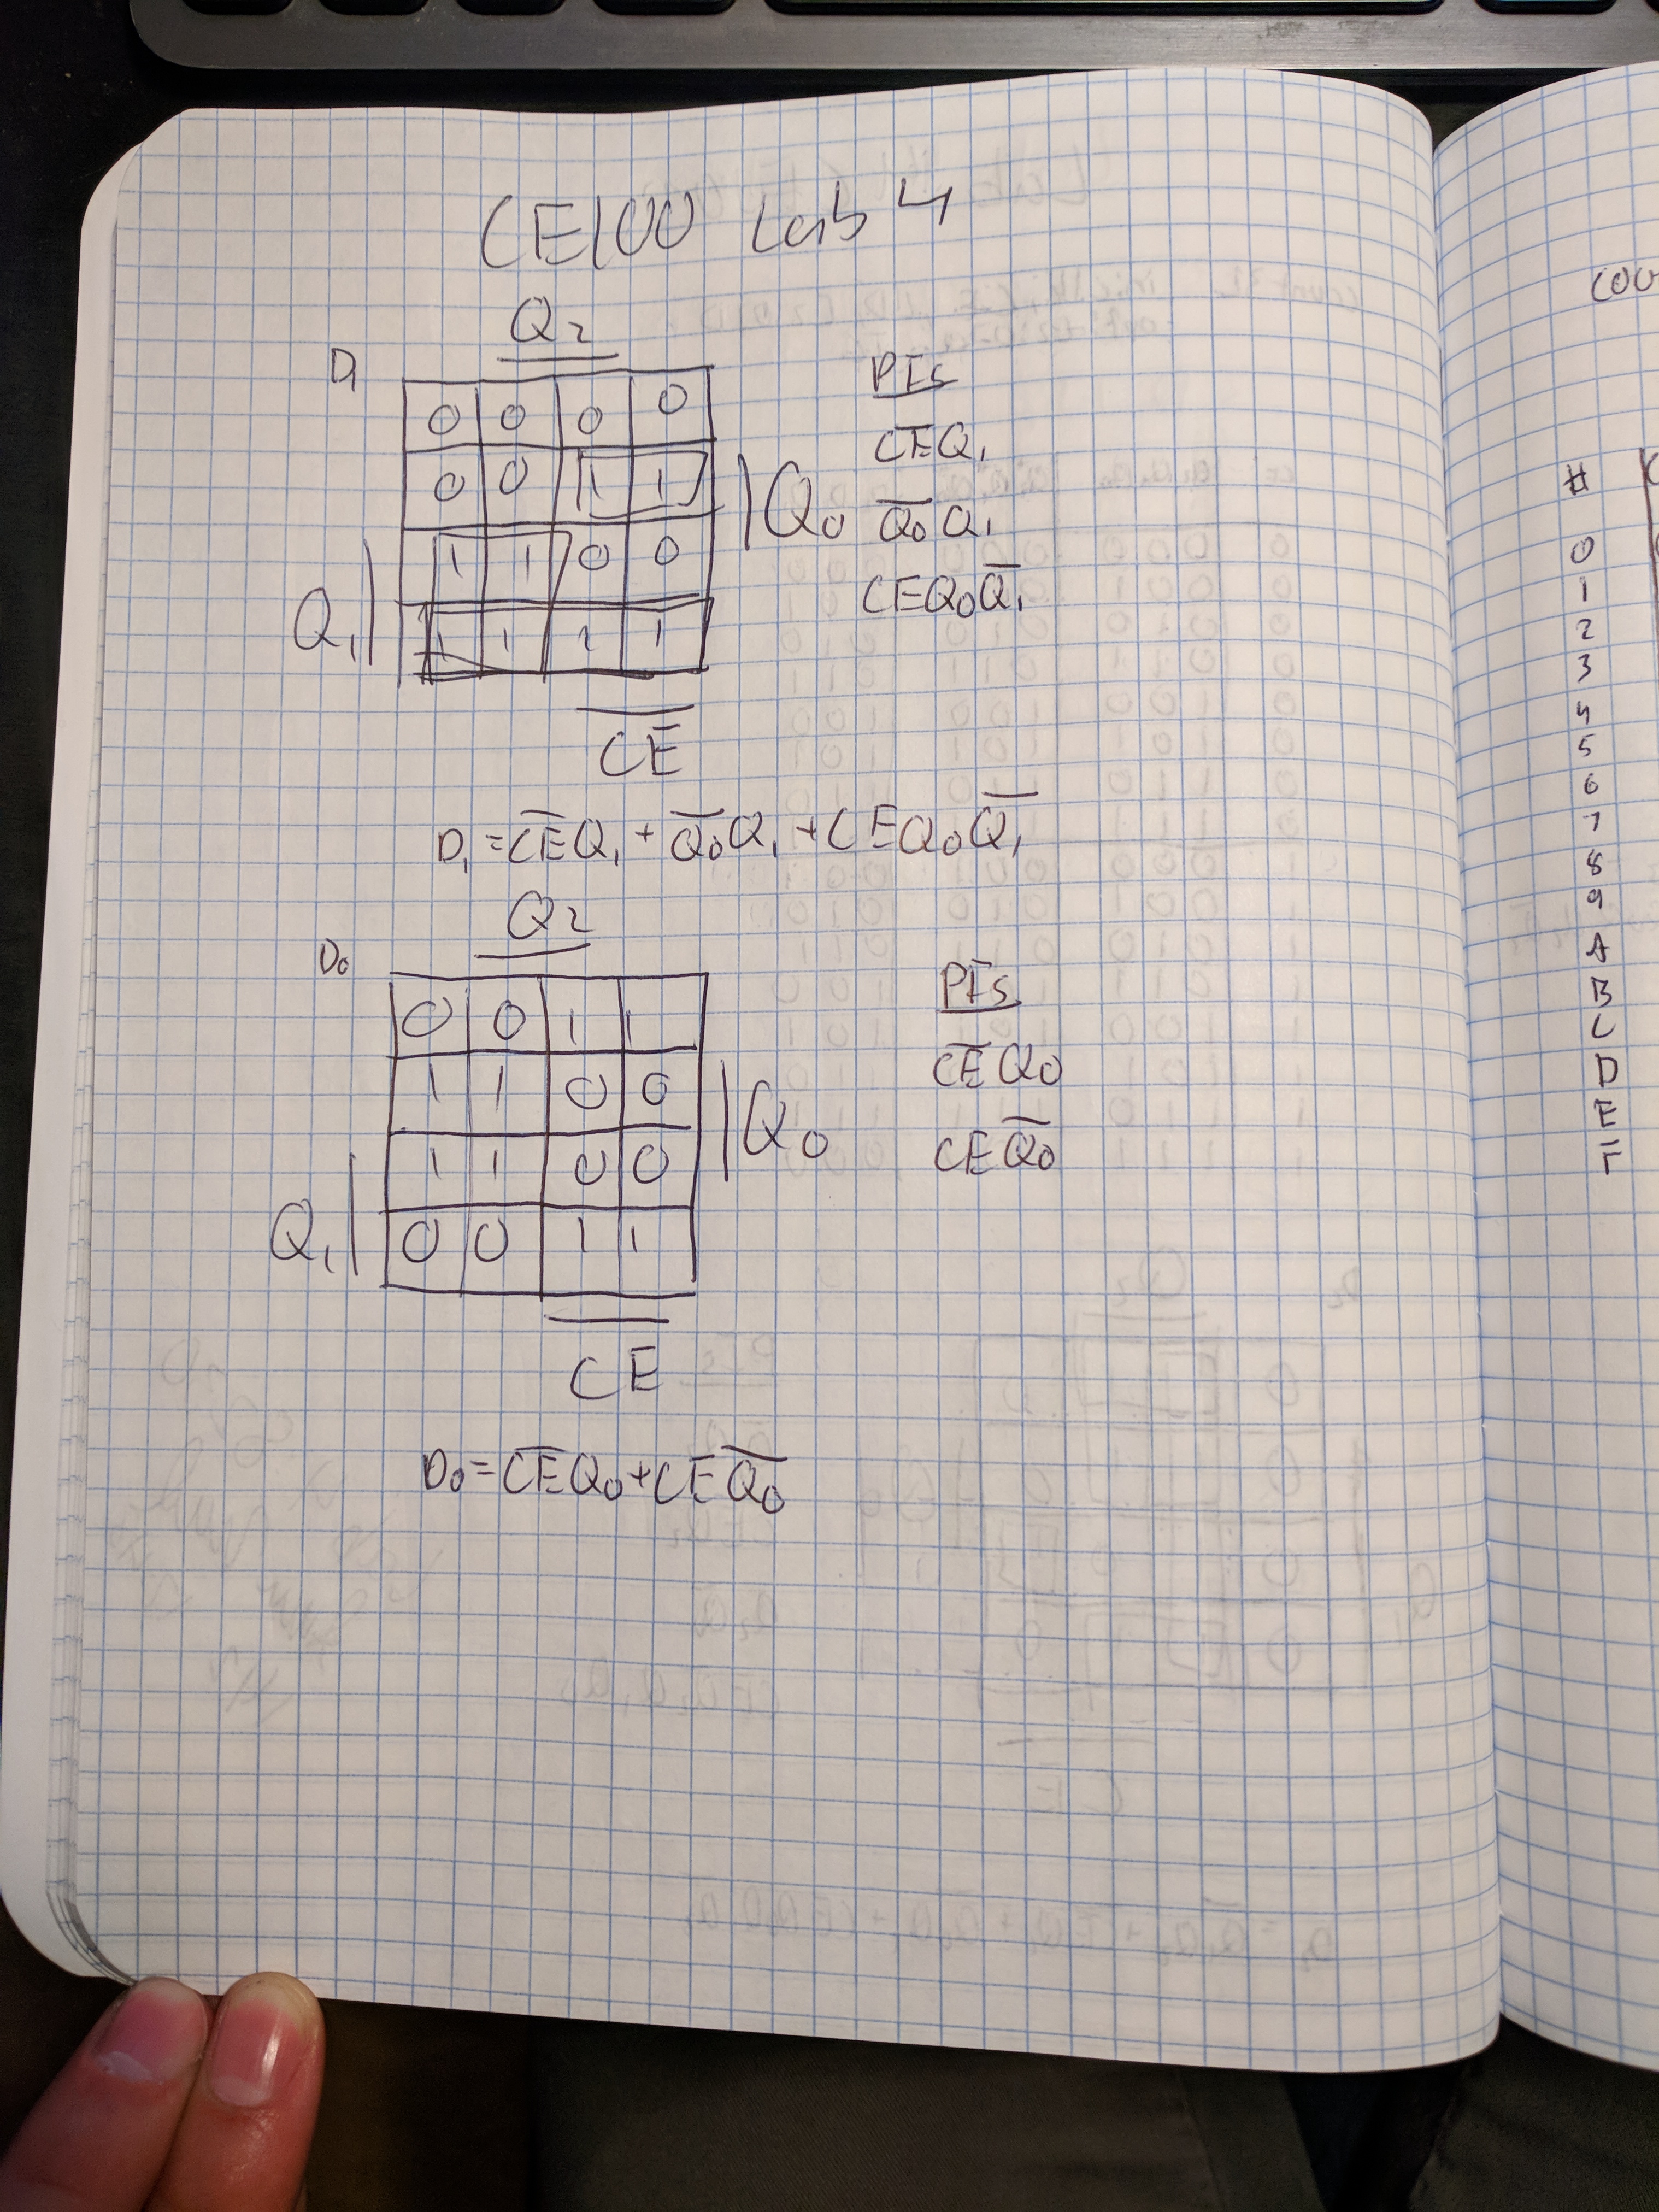 CE100 Lab 4
Q2
D1
0 0 0 0
0 0 1 1
Q0
1 1 0 0
Q1
1 1 1 1
CE
PIs
C̅E̅Q1
Q̅0̅Q1
CEQ0Q̅1̅
D1 = C̅E̅Q1 + Q̅0̅Q1 + CEQ0Q̅1̅
Q2
D0
0 0 1 1
1 1 0 0
Q0
1 1 0 0
Q1
0 0 1 1
CE
PIs
C̅E̅Q0
CEQ̅0̅
D0 = C̅E̅Q0 + CEQ̅0̅
#
0
1
2
3
4
5
6
7
8
9
A
B
C
D
E
F